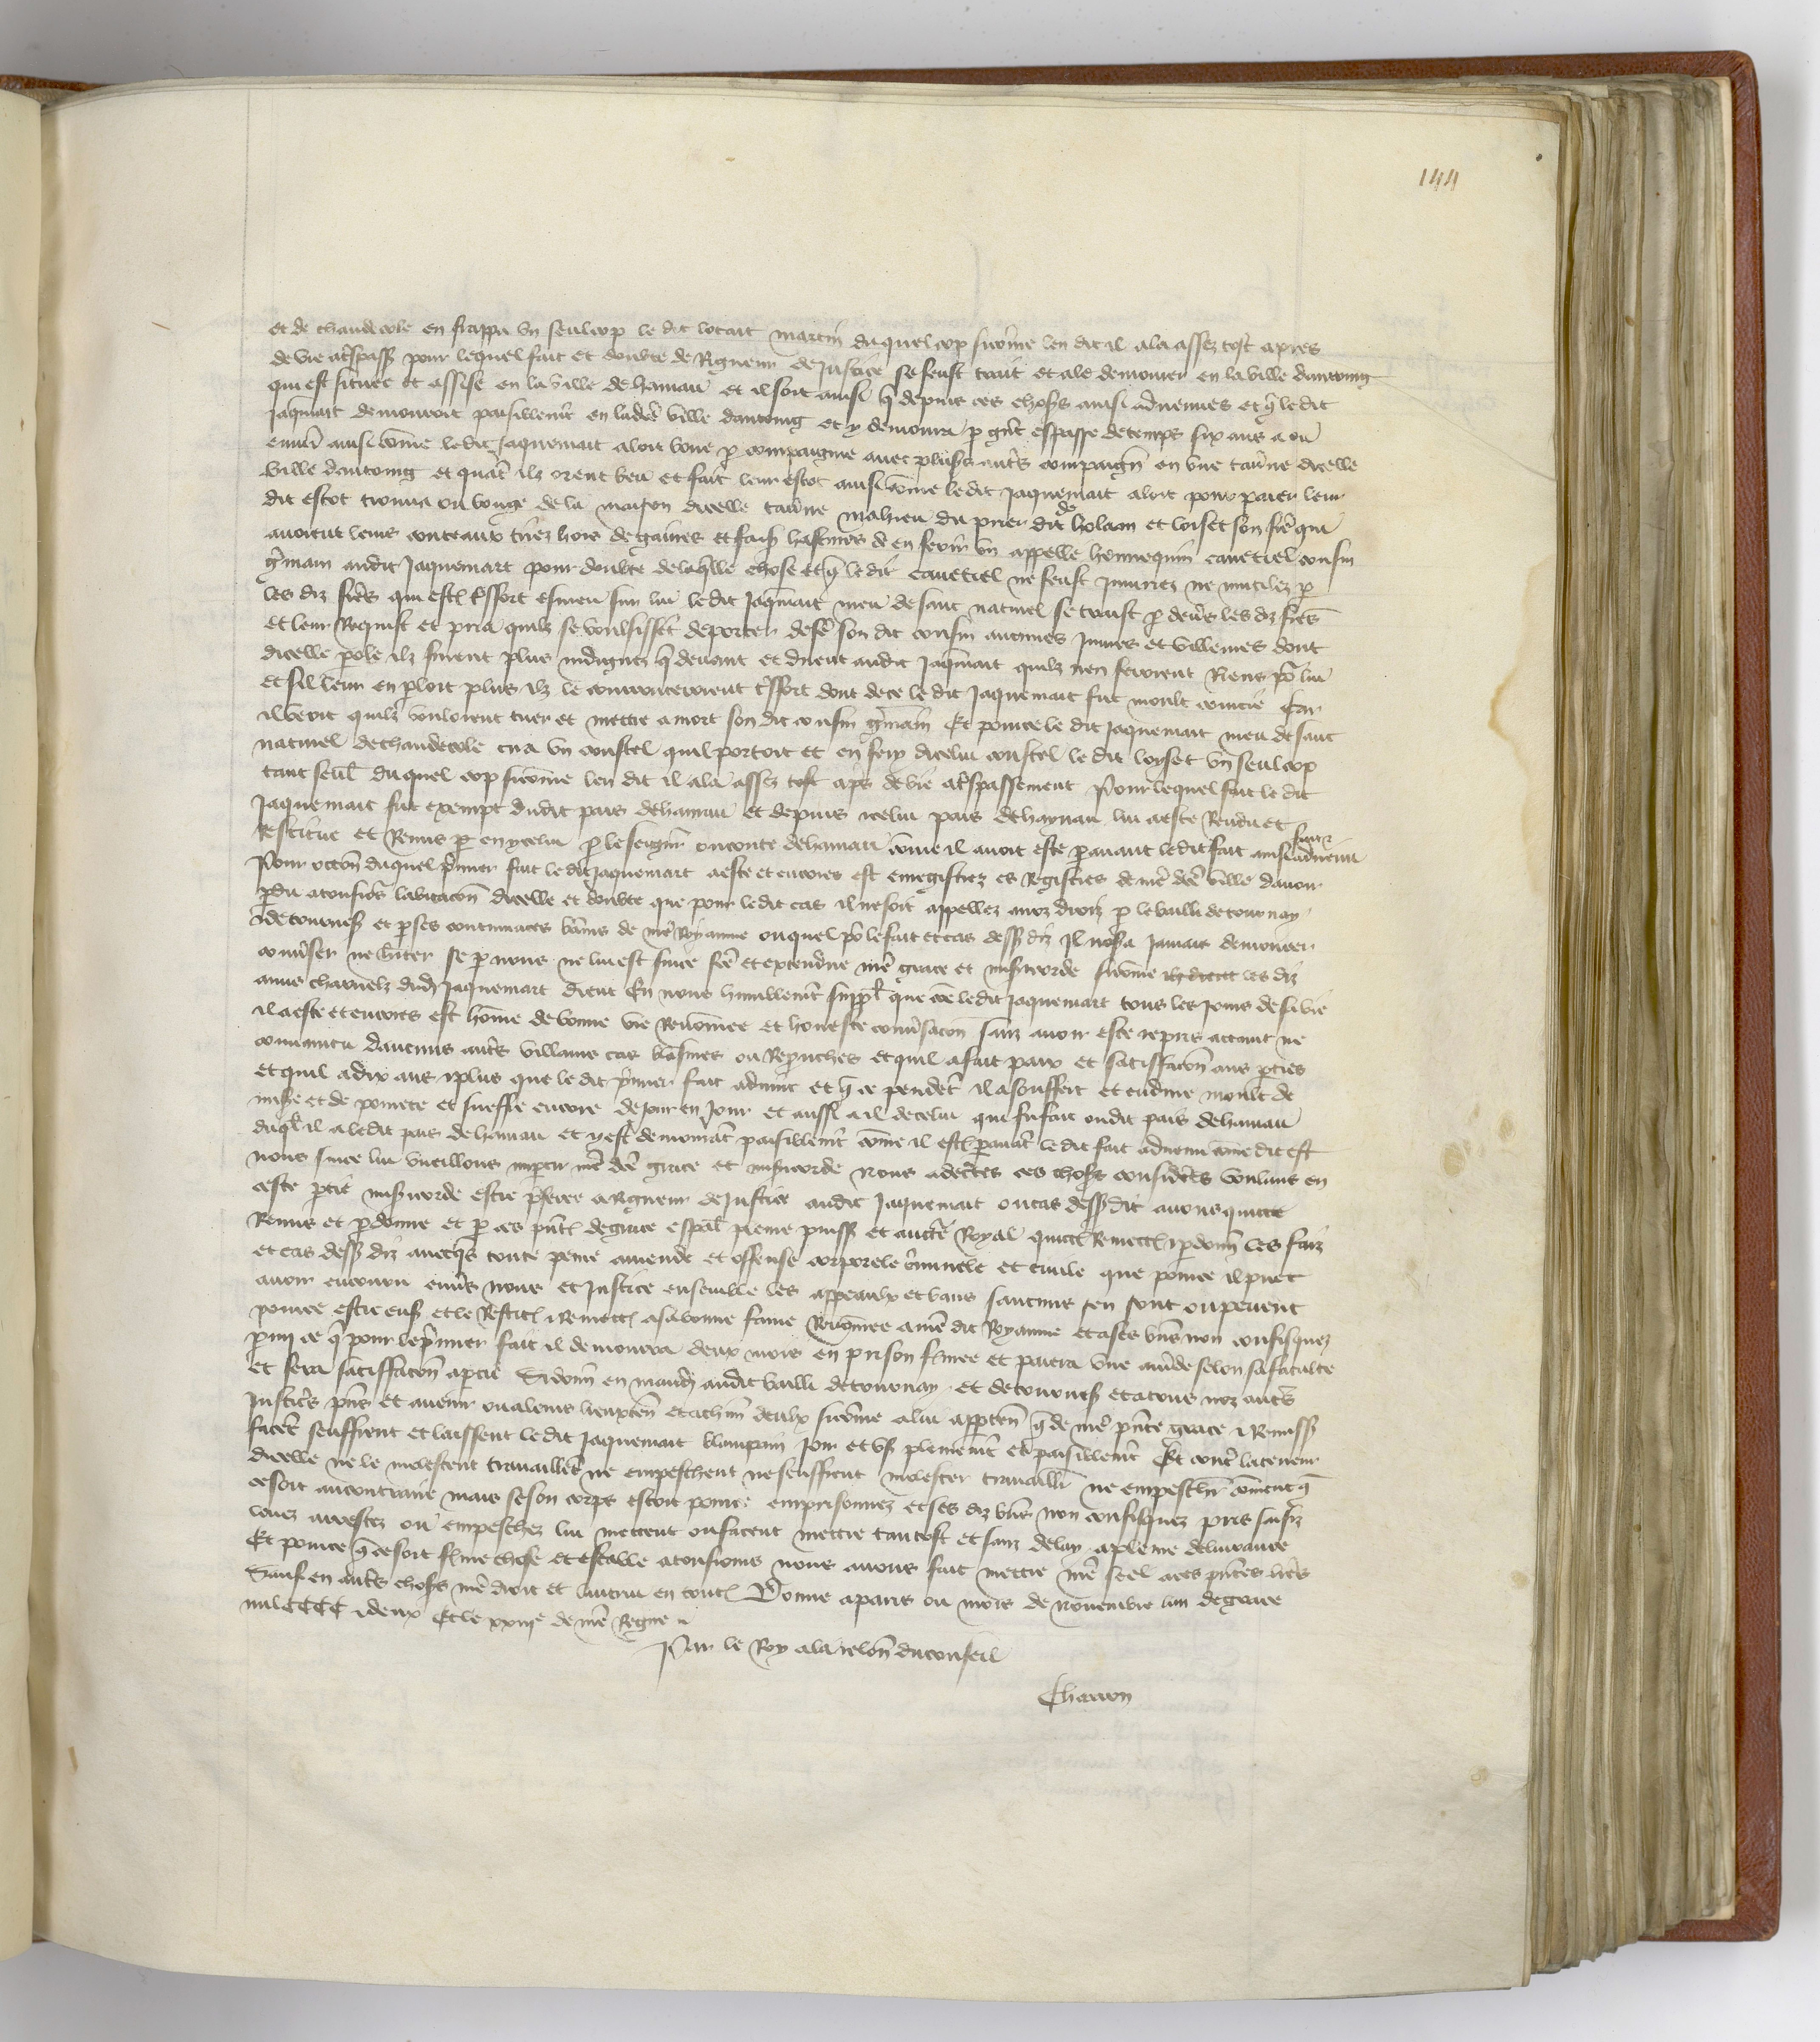 144
et de chaude cole en frappa un seul cop le dit lotart martin duquel cop sicõme len dit il ala assez tost apres
de vie a tspass pour lequel fait et doubte de Rigueur de justice se feust trait et ale demourer en la ville dantoing
qui est située et assise en la ville de hainau et il soit ainsi q̃ depuis ces choses ainsi advenues et q̃ le dit
Jaqmart demouroit paisiblemt en ladicte ville dantoing et y demoura p gnt espasse de temps six ans a ou
environ ainsi cõme le dit Jaquemart aloit boire p compaignie avec plus autres compaign en une tavne dicelle
ville dantoing et quant ilz orent beu et fait leur escot ainsi cõme le dit Jaquemart aloit pour paier leur
dit escot trouva ou bouge de la maison dicelle tavne mahieu du prier dit de holain et loiset son frere qui
avoient leurs couteaux tirez hors de gaines et faiz hastives de en ferir un appelle hennequin cavetiel cousin
gmain audit Jaquemart pour doubte de laqlle chose et q̃ le dit cavetiel ne feust Injuriez ne mutilez p
les diz freres qui est tsfort esmeu sur lui le dit Jaqmart meu de sanc naturel se traist p devs les diz freres
et leur Requist et pria quilz se voulsissent deporter de fe son dit cousin aucunes Injures et villenies dont
dicelle pole ilz furent plus indignez q̃ devant et dirent audit Jaqmart quilz nen feroient Riens po lui
et sil leur en ploit plus ilz le courrouceroient tsfort dont de ce le dit Jaquemart fut moult courcie Car
il veoit quilz vouloient tuer et mettre a mort son dit cousin gmain Et pour ce le dit Jaquemart meu de sanc
naturel de chaudecole tira un coustel quil portoit et en fery dicelui coustel le dit loyset un seul cop
tant seul duquel cop sicõme len dit il ala assez tost aps de vie a tspassement Pour lequel fait le dit
Jaquemart fut exempt dudit pais de hainau et depuis icelui pais de haynau lui a este Rendu et
Restitue et Remis p en ycelui p le seignr ou conte de hainau cõme il avoit este p avant le dit fait ainsi advenu
Pour occon duquel prmier fait le dit Jaquemart a este et encores est enregistrez es Registres de nre dce ville davoir
pdu a tousios labitacon dicelle et doubte que pour le dit cas il ne soit appellez aux droiz p le bailli de tournay
& de tournes et p ses contumaces bãnis de nre Royaume ouquel po le fait et cas dess diz Il nosa jamais demourer
convser ne hãter se p nous ne lui est sur ce fce et extendue nre grace et miscorde sicõme les diz
amis charnelz dud Jaquemart dient En nous humblemt suppl que cõe le dit Jaquemart tous les jours de sa vie
il a este et encores est hõme de bonne vie Renõmee et honeste convsacon sanz avoir este repris actaint ne
convaincu daucuns autres villains cas blasmes ou Reprouches et quil a fait paix et satisfacon aus pties
et quil a dix ans & plus que le dit prmier fait advint et q̃ ce pendt il a souffert et endure moult de
misere et de povrete et sueffre encore de jour en jour et aussi a il de celui qui fu fait oudit pais de hainau
duql il a ledit pais de hainau et y est demourant paisiblemt cõme il est pavant le dit fait advenu cõme dit est
nous sur ce lui vueillons impartir nre dce grace et miscorde Nous adectes ces choses considees voulans en
ceste ptie miscorde estre pferee a Rigueur de justice audit Jaquemart ou cas dess dit avons quicte
Remis et pdonne et p ces pntes de grace espal pleine puiss et aucte Royal quictons Remettons & pdonns les faiz
et cas dess diz avecqs toute peine amende et offense corporele criminele et civile que pour ce il puet
avoir encouru envs nous et justice ensemble les appeaulx et bans saucuns sen sont ou pevent
pour ce estre ensuiz et le Restitons & Remettons a sa bonne fame Renõmee a nre dit Royaume et a ses biens non confisquez
pmi ce q̃ pour le prmier fait il demourra deux mois en prison fmee et paiera une amende selon sa faculte
et fera satisfacon a ptie Si donns en mandemt audit bailli de tournay & de tournes et a tous noz autres
justicrs pns et avenir ou a leurs lieuxten et a chun deulx sicõme a lui apptendra q̃ de nre pnte grace & Remiss
facent seuffrent et laissent le dit Jaquemart blamprin joir et us plainemt et paisiblemt Et contre la teneur
dicelle ne le molestent travaillent ne empeschent ne seuffrent molester travailler ne empeschier cõment q̃
ce soit au contraire mais se son corps estoit pour ce emprisonnez et ses diz biens non confisquez pris saisiz
levez arrestez ou empeschez lui mettent ou facent mettre tantost et sanz delay a pleine delivrance
Et pour ce q̃ ce soit fme chose et estable a tousiours nous avons fait mettre nre seel a ces pntes lres
Sauf en autres choses nre droit et lautrui en toutes Donne a paris ou mois de novembre lan de grace
mil CCCC & deux Et le xxiije de nre Regne
Par le Roy a la relon du conseil
Charron